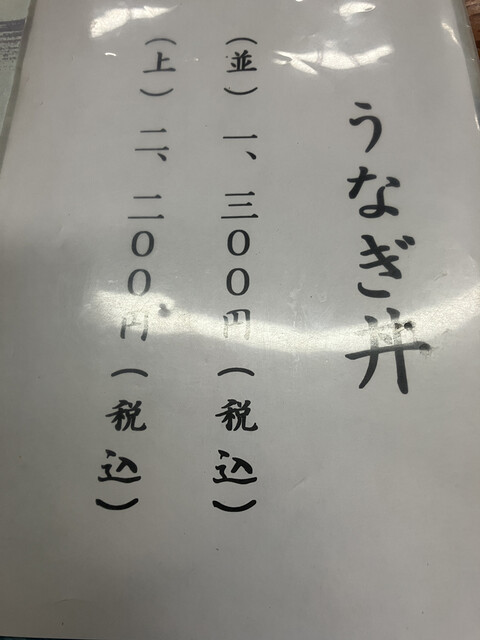 うなぎ丼
（並）一、三００円（税込）
（上）二、二００円（税込）